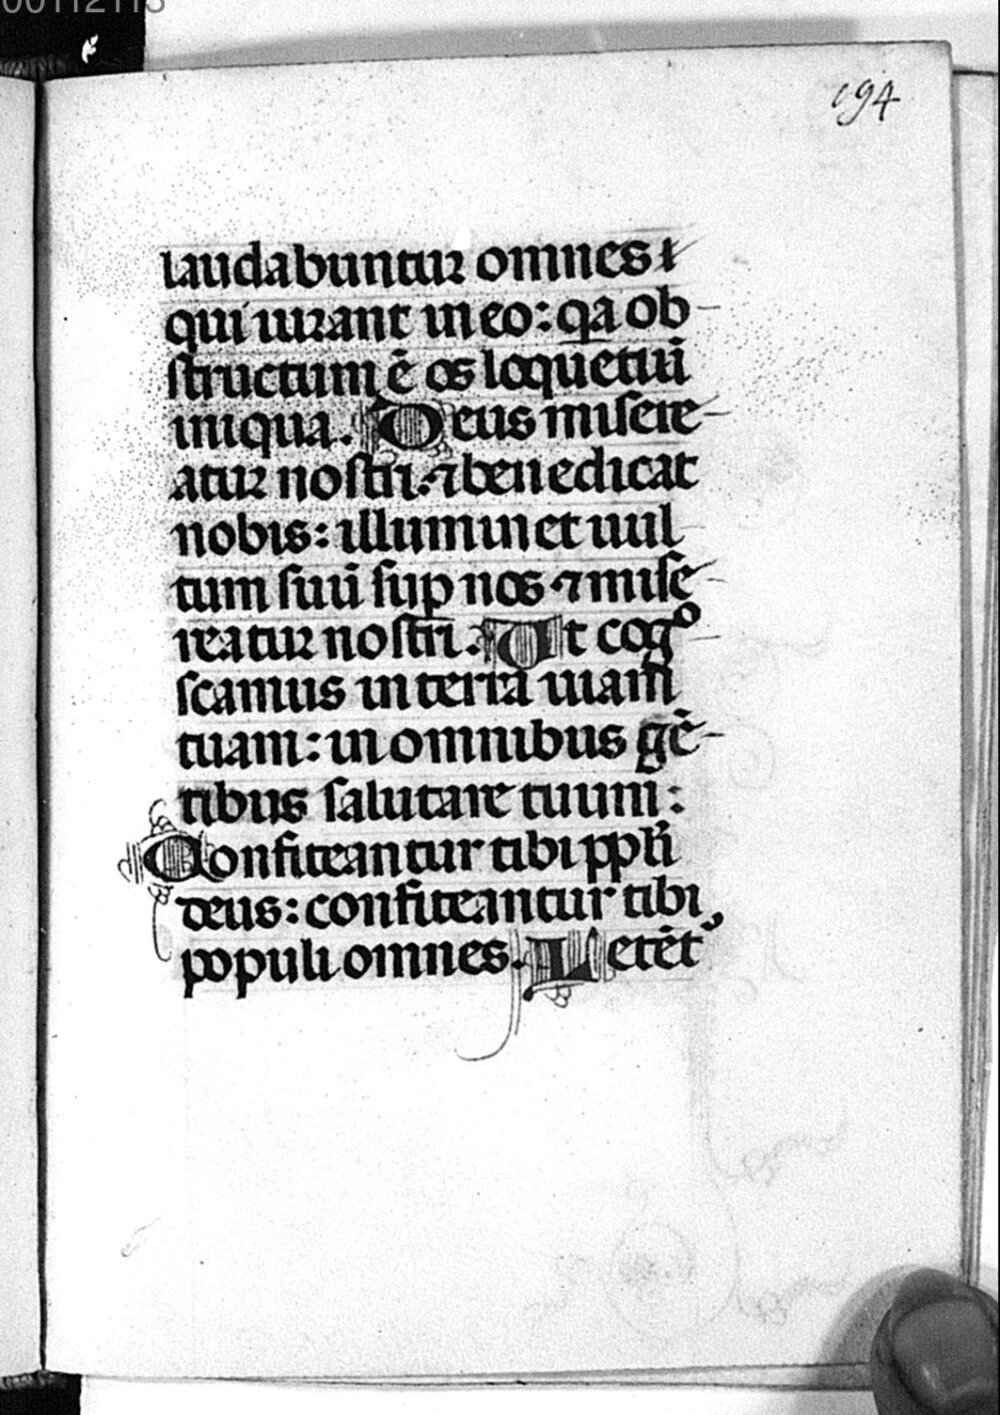 00112113
194
laudabuntur omnes
qui iurant in eo: qa ob
structum ē os loquētiū
iniqua. Deus misere
atur nostri: ⁊ benedicat
nobis: illuminet uul
tum suū sup nos ⁊ mise
reatur nostri. Ut cogº
scamus in terra uiam
tuam: in omnibus gē
tibus salutare tuum:
Confiteantur tibi ppli
deus: confiteantur tibi
populi omnes. Letēt